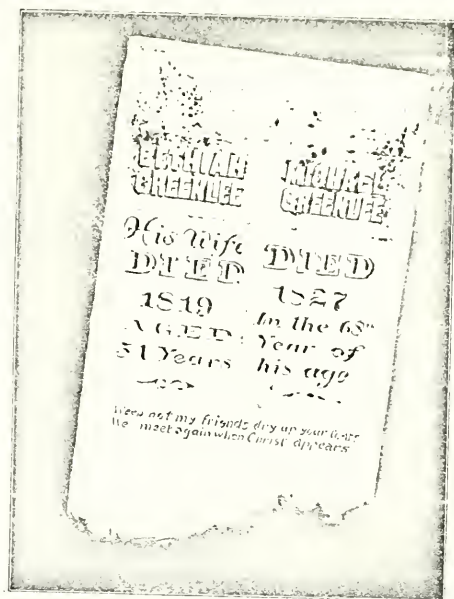 BETHIAH
GREENLEE
His Wife
DIED
1819
AGED
51 Years
MICHAEL
GREENLEE
DIED
1827
In the 68th
Year of
his age
Weep not my friends dry up your tears
We meet again when Christ appears